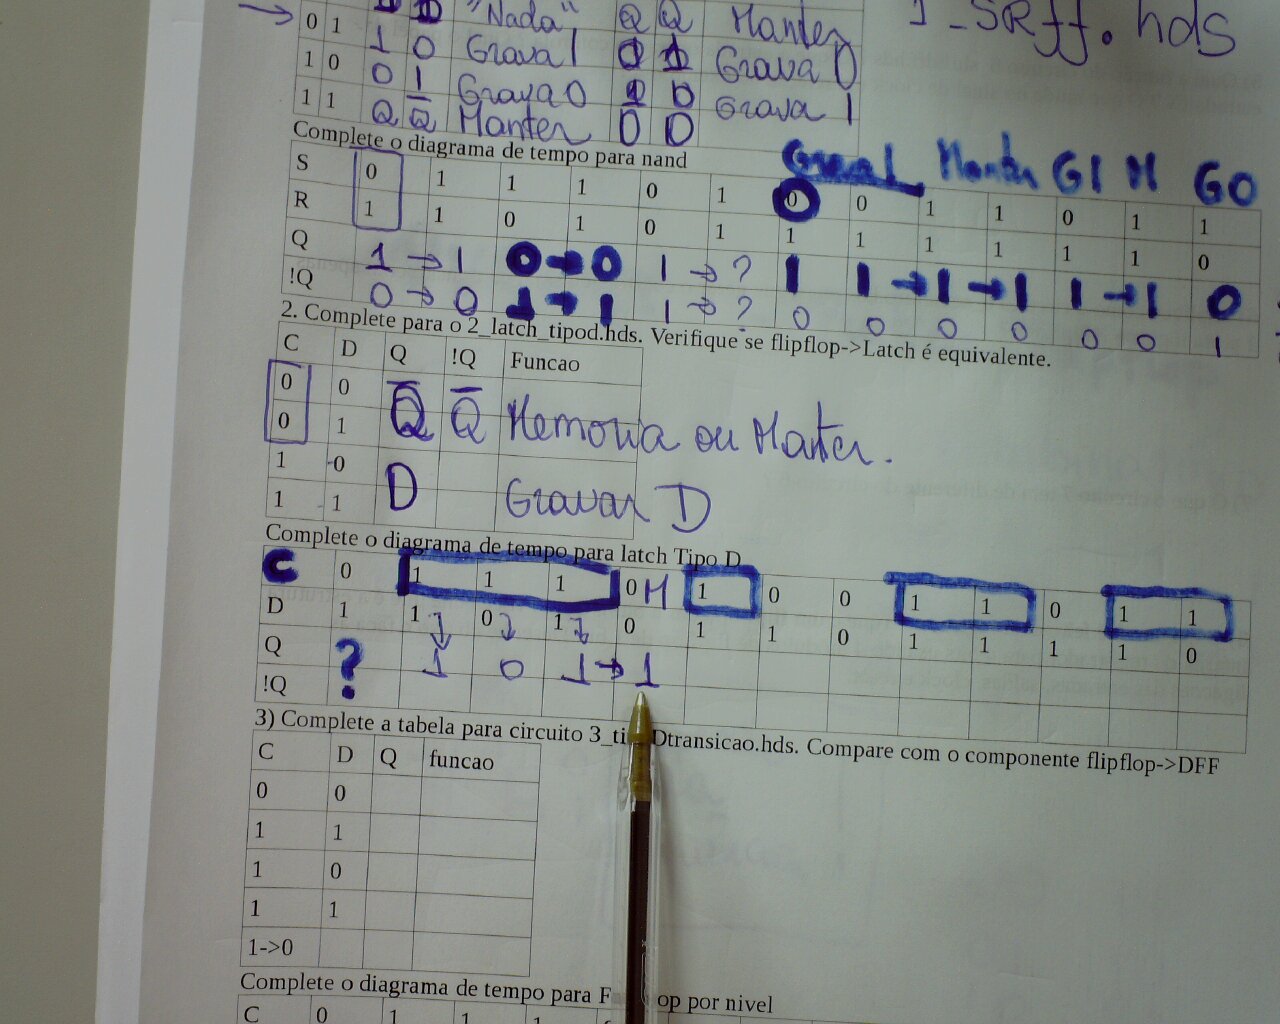 0 1 "Nada" Q Q Manter 1_SRff.hds
1 0 1 0 Grava 1 0 1 Grava 0
1 1 0 1 Grava 0 1 0 Grava 1
Q Q̅ Manter 0 0
Complete o diagrama de tempo para nand Grava 1 Manter G1 M G0
S 0 1 1 1 0 1 0 0 1 1 0 1 1
R 1 1 0 1 0 1 1 1 1 1 1 1 0
Q 1 → 1 0 → 0 1 → ? 1 1 → 1 → 1 1 → 1 0
!Q 0 → 0 1 → 1 1 → ? 0 0 0 0 0 0 1
2. Complete para o 2_latch_tipod.hds. Verifique se flipflop->Latch é equivalente.
C D Q !Q Funcao
0 0
0 1 Q̅ Q̅ Memoria ou Manter.
1 0
1 1 D Gravar D
Complete o diagrama de tempo para latch Tipo D
C 0 1 1 1 0 M 1 0 0 1 1 0 1 1
D 1 1 0 1 0 1 1 0 1 1 1 1 0
Q ? 1 0 1 → 1
!Q
3) Complete a tabela para circuito 3_ti Dtransicao.hds. Compare com o componente flipflop->DFF
C D Q funcao
0 0
1 1
1 0
1 1
1->0
Complete o diagrama de tempo para F op por nivel
C 0 1 1 1